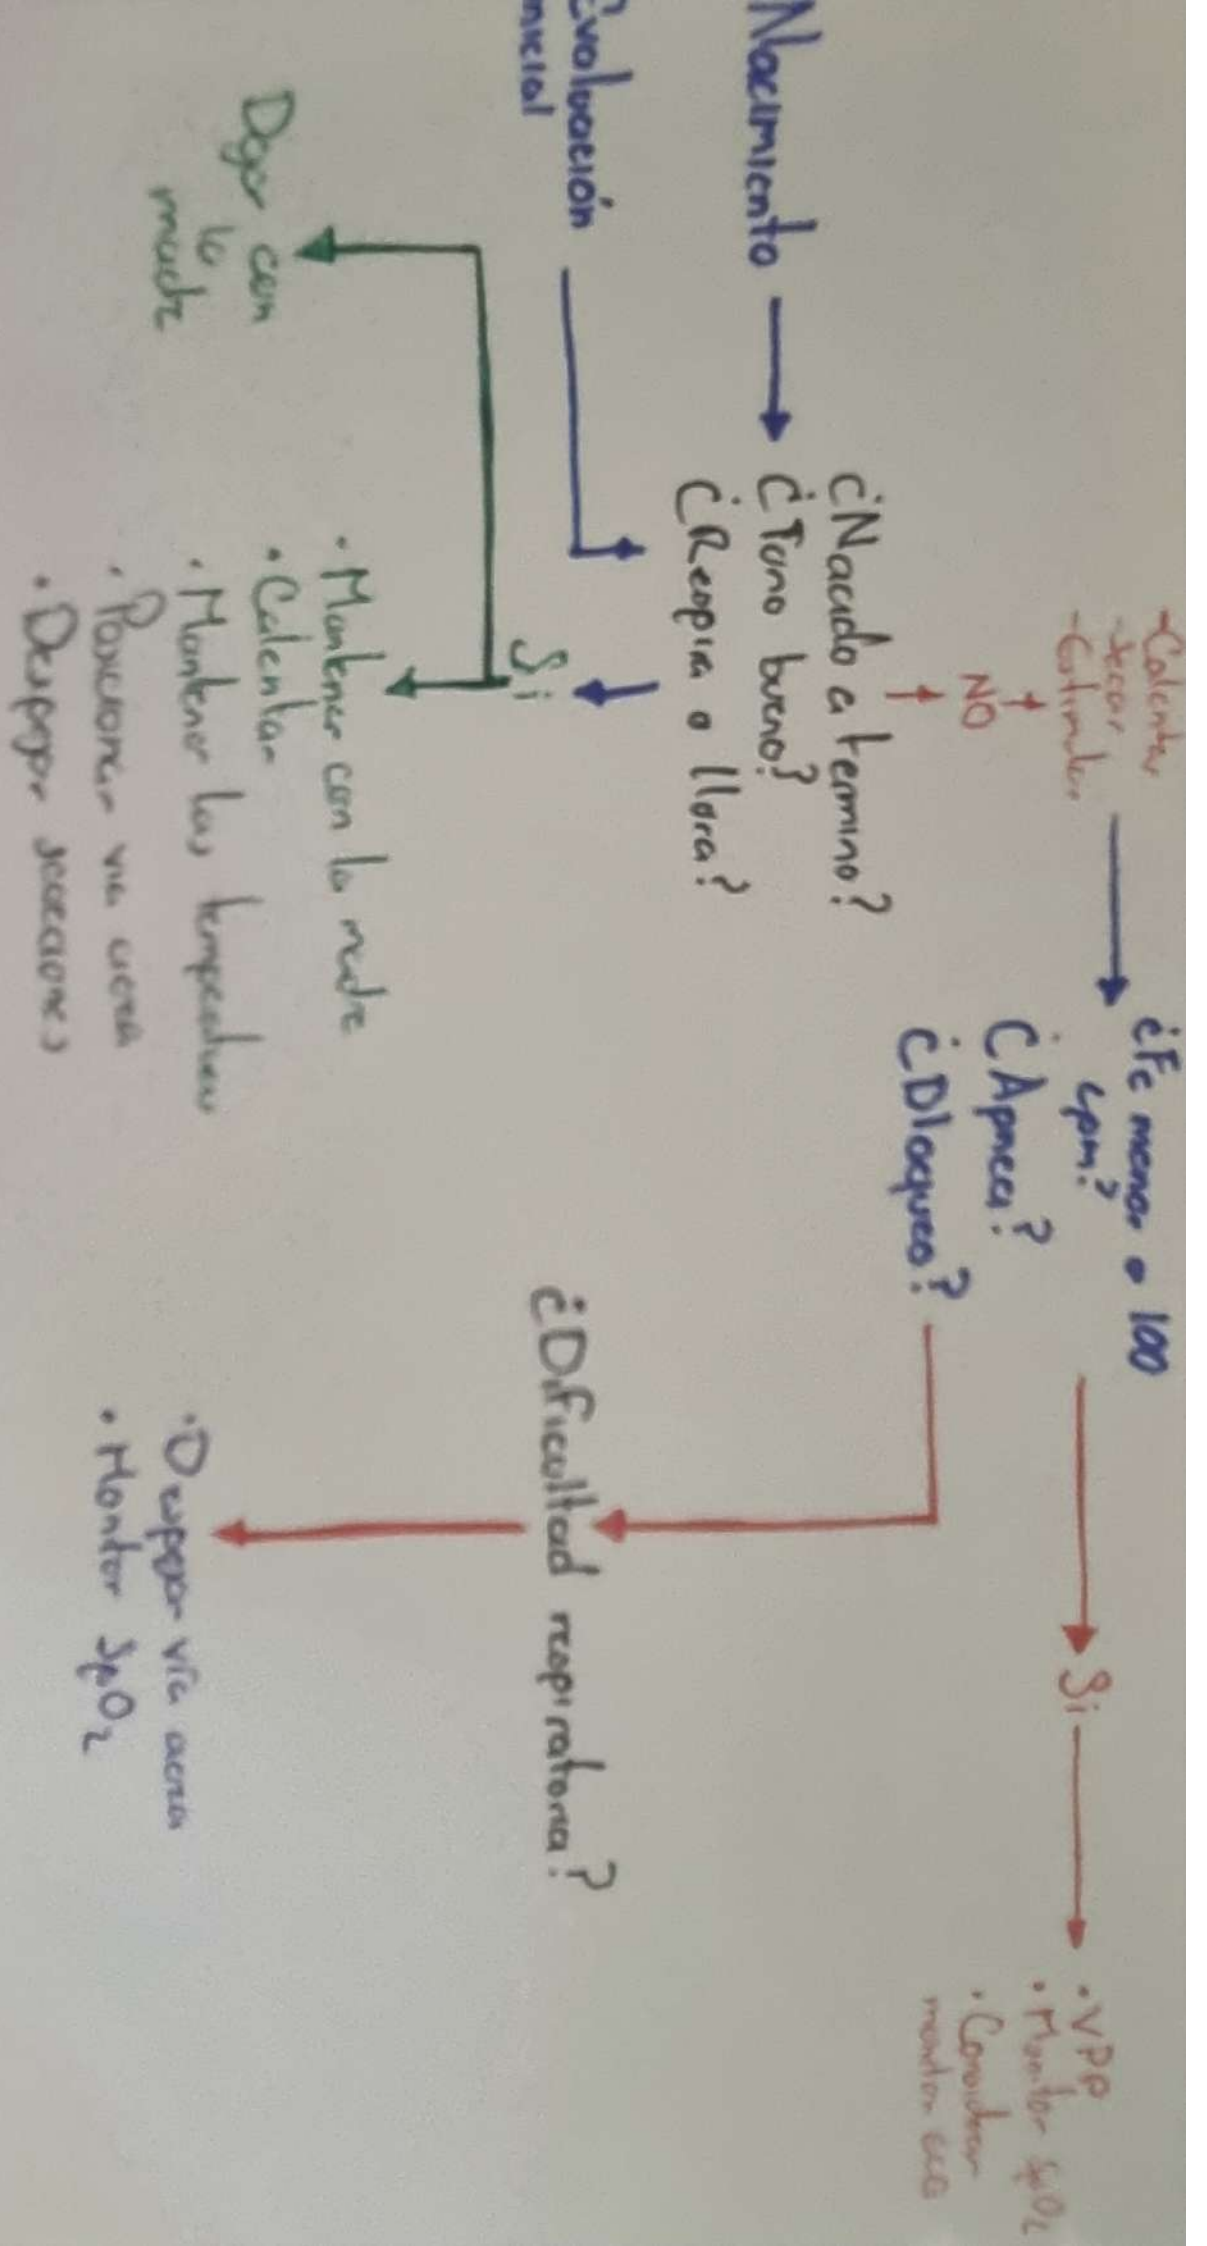 -Calentar
-Secar
-Estimular
NO
Nacimiento
¿Nacido a termino?
¿Tono bueno?
¿Respira o llora?
Evaluación
inicial
Si
Dejar con
la
madre
• Mantener con la madre
• Calentar
• Mantener las temperatura
• Posicionar via aerea
• Despejar secreciones
¿Fc menor a 100
cpm?
¿Apnea?
¿Bloqueo?
Si
• VPP
• Monitor SpO2
• Considerar
monitor ECG
¿Dificultad respiratoria?
• Despejar vía aerea
• Monitor SpO2